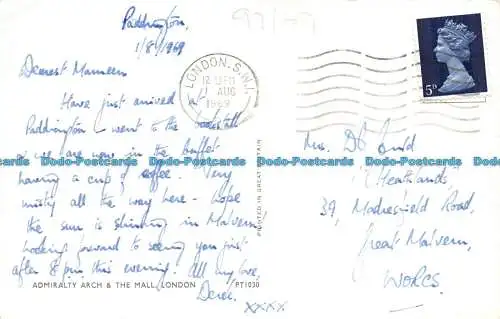 97/07
Paddington,
1/8/1969
Dearest Maureen
Have just arrived at
Paddington went to the bookstall
& we are now in the buffet
having a cup of coffee. Very
misty all the way here - hope
the sun is shining in Malvern.
Looking forward to seeing you just
after 8 pm this evening. All my love,
Derek.
xxxx
ADMIRALTY ARCH & THE MALL, LONDON PT1030
PRINTED IN GREAT BRITAIN
LONDON. S.W.1.
12
1 AUG
1969
5D
Mrs.
"Heathlands"
39, Madresfield Road,
Great Malvern,
WORCS.
bdc-Postcards